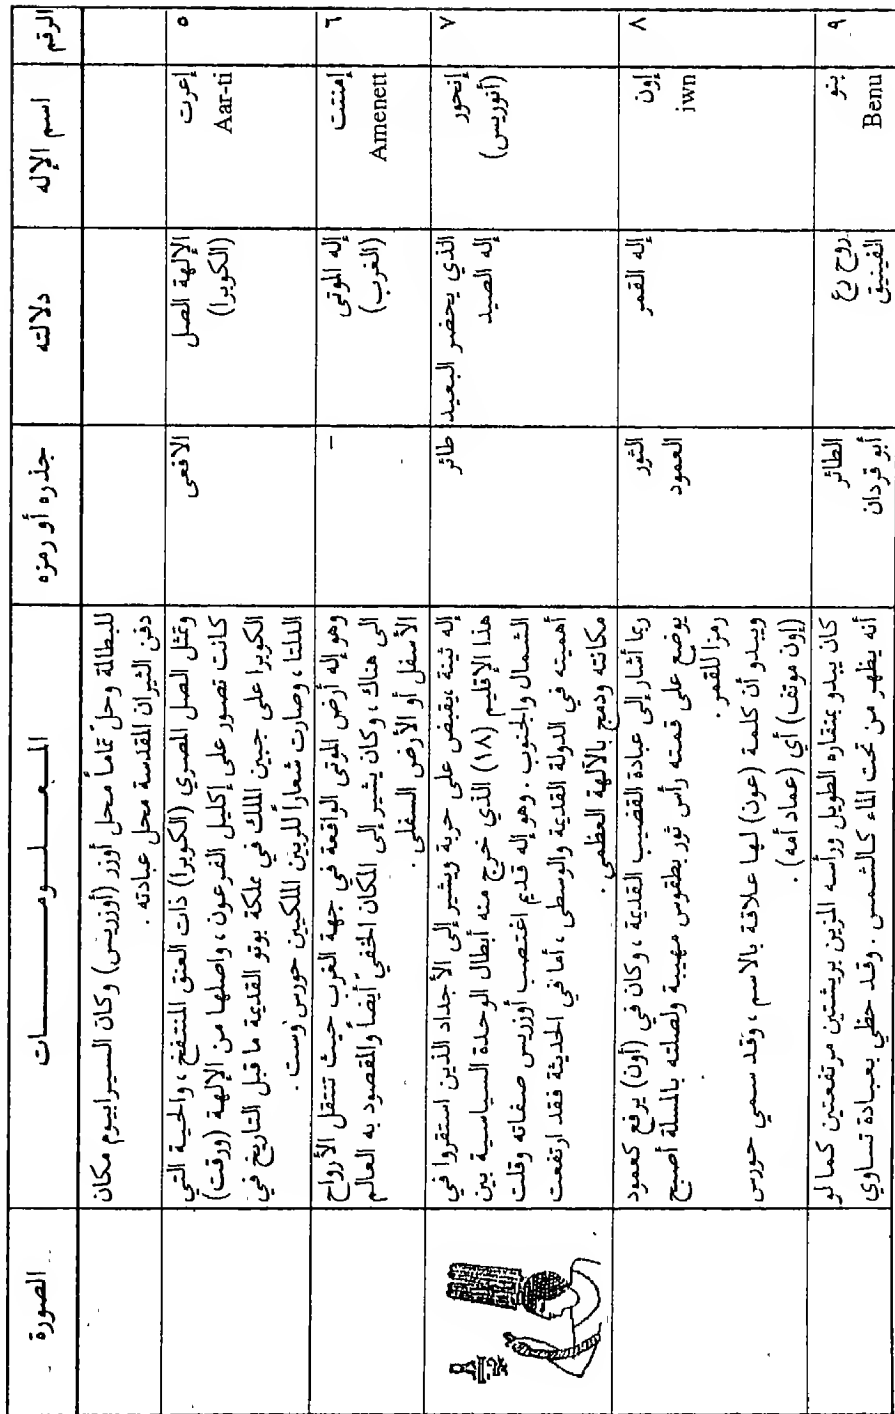 الرقم
اسم الإله
دلالته
جذره أو رمزه
المعلومات
الصورة
للبطالة وحلّ تماماً محل أوزر (أوزريس) وكان السيرابيوم مكان
دفن الثيران المقدسة محل عبادته .
٥
إعرت
Aar-ti
الإلهة الصل
(الكوبرا)
الافعى
وتمثل الصل المصري (الكوبرا) ذات العنق المنتفخ ، والحية التي
كانت تصور على إكليل الفرعون ، واصلها من الإلهة (ووقت)
الكوبرا على جبين الملك في مملكة بوتو القديمة ما قبل التاريخ في
الدلتا ، وصارت شعاراً للربين الملكيين حورس وست .
٦
إمنتت
Amenett
إله الموتى
(الغرب)
-
وهو إله أرض الموتى الواقعة في جهة الغرب حيث تنتقل الأرواح
الى هناك ، وكان يشير إلى المكان الخفيّ أيضاً والمقصود به العالم
الأسفل أو الأرض السفلى .
٧
إنحور
(أنوريس)
الذي يحضر البعيد
إله الصيد
طائر
إله ثينة ، يقبض على حربة ويشير إلى الأجداد الذين استقروا في
هذا الإقليم (١٨) الذي خرج منه أبطال الوحدة السياسية بين
الشمال والجنوب . وهو إله قديم اغتصب أوزريس صفاته وقلت
أهميته في الدولة القديمة والوسطى ، أما في الحديثة فقد ارتفعت
مكانته ودمج بالآلهة العظمى .
٨
إون
iwn
إله القمر
الثور
العمود
ربما أشار إلى عبادة القضيب القديمة ، وكان في (أون) يرفع كعمود
يوضع على قمته رأس ثور بطقوس مهيبة ولصلته بالمسلة أصبح
رمزا للقمر .
ويبدو أن كلمة (عون) لها علاقة بالاسم ، وقد سمي حورس
(إون موتف) أي (عماد أمه) .
٩
بنو
Benu
روح رع
الفينيق
الطائر
أبو قردان
كان يبدو بمنقاره الطويل ورأسه المزين بريشتين مرتفعتين كما لو
أنه يظهر من تحت الماء كالشمس . وقد حظي بعبادة تساوي